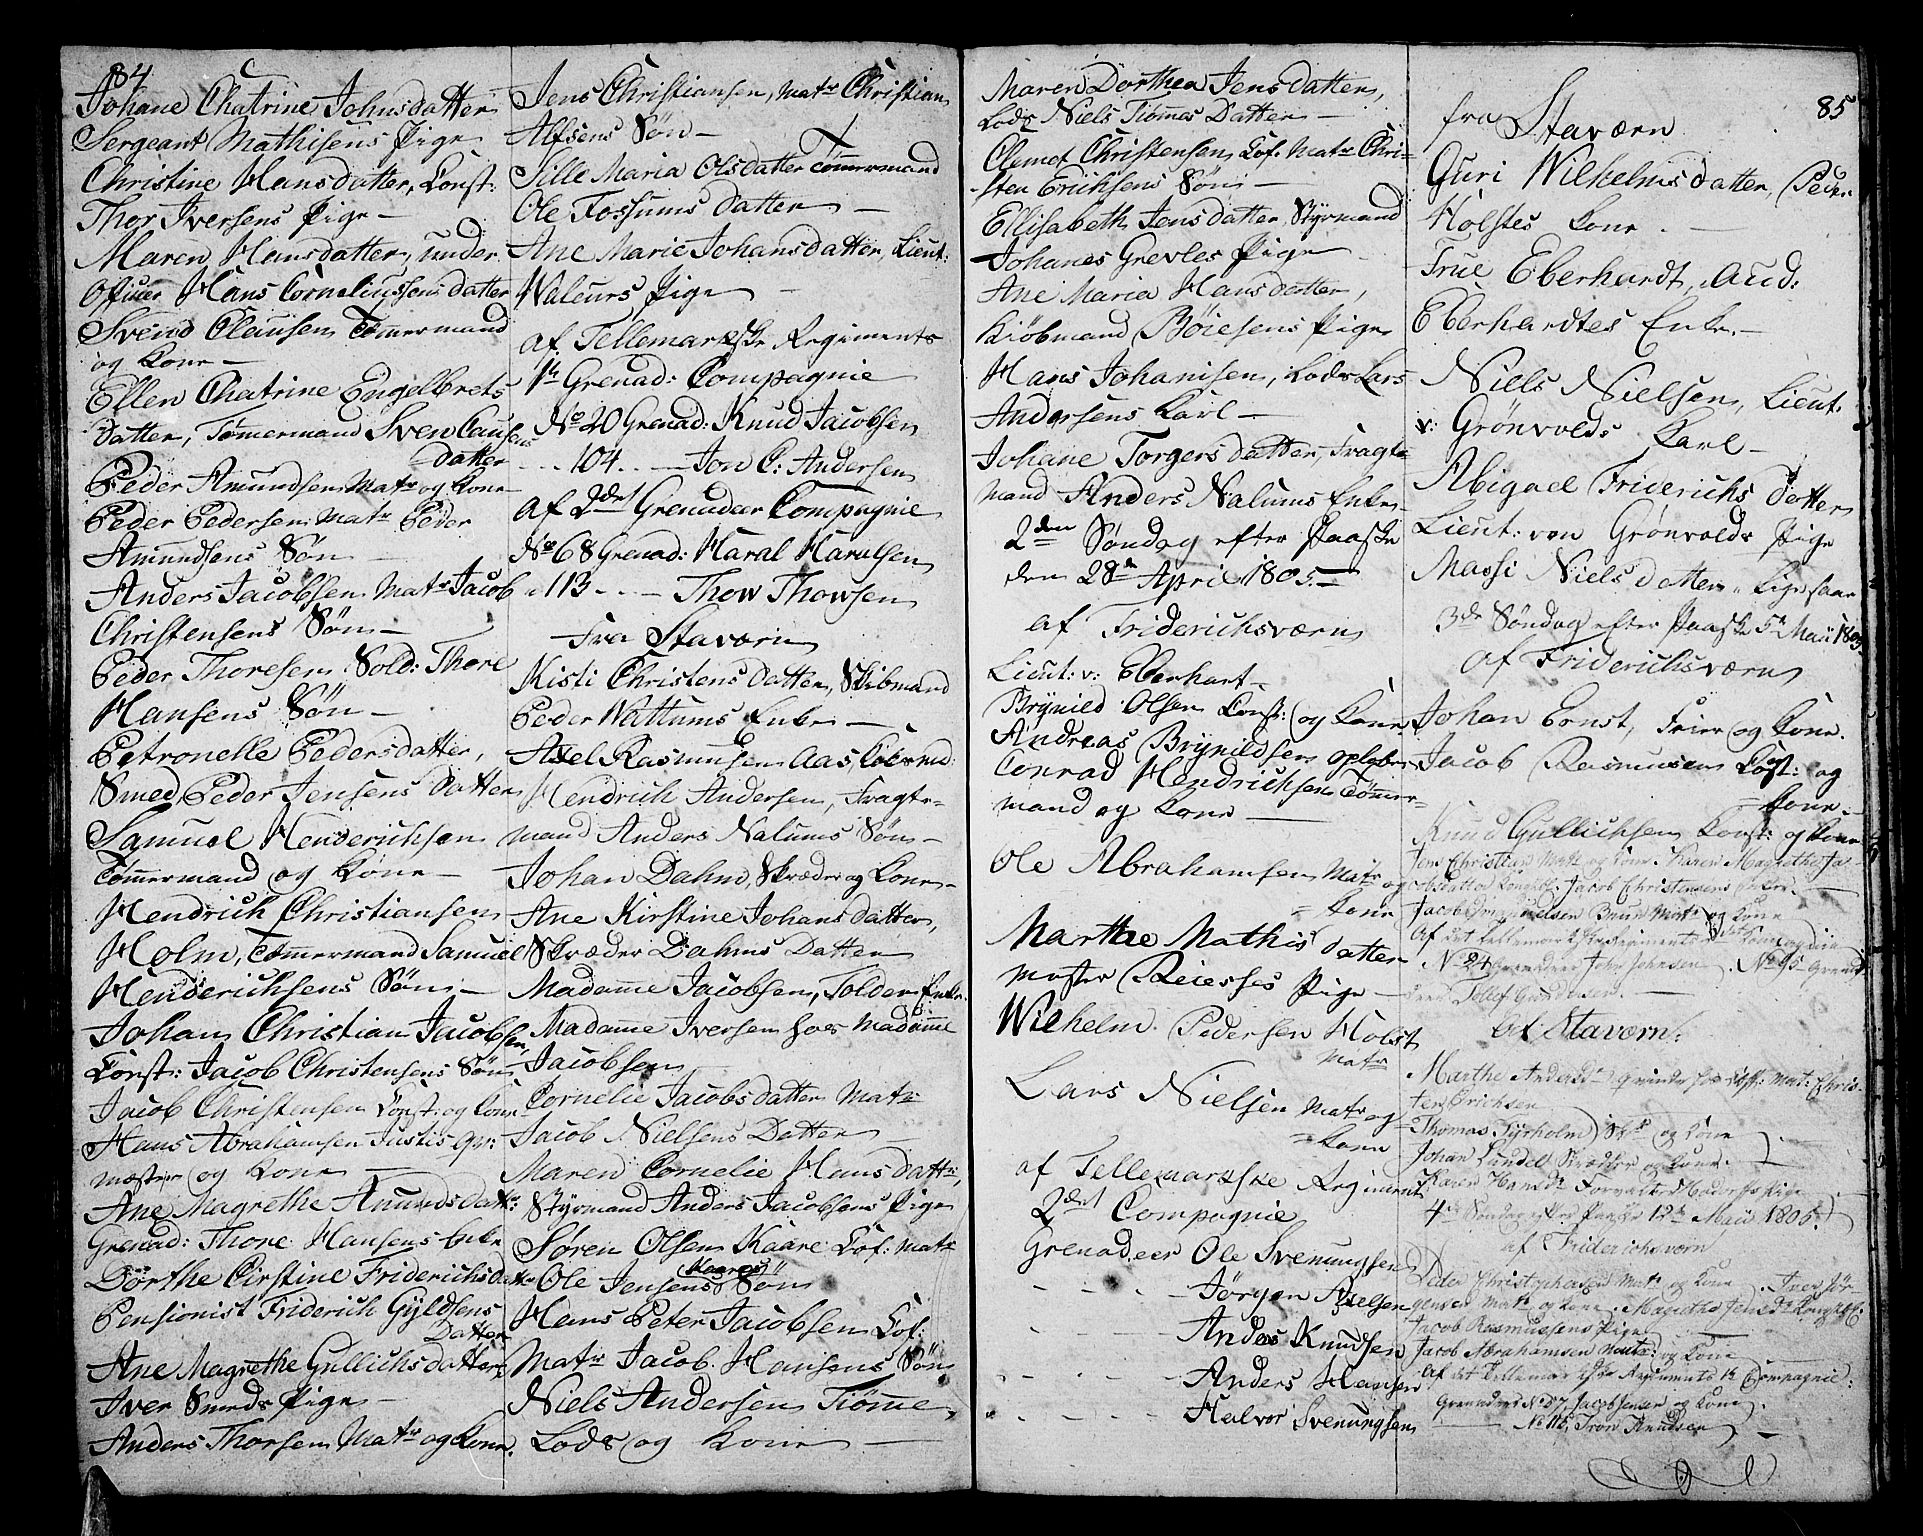 84
Johane Chatrine Johnsdatter
Sergeant Mathisens Pige
Christine Hansdatter, Const:
Thor Iversens Pige –
Maren Hansdatter, under
Officeer Hans Corneliussens datter
Svend Clausen Tømermand
og Kone –
Ellen Chatrine Engelbrets
datter, Tømermand Sven Clausens
datter
Peder Amundsen Matr og Kone
Peder Pedersen Matr Peder
Amundsens Søn –
Anders Jacobsen Matr Jacob
Christensens Søn –
Peder Thoresen, Sold: Thore
Hansens Søn –
Petronelle Pedersdatter,
Smed Peder Jensens Datter
Samuel Henderichsen
Tømmermand og Kone –
Hendrich Christiansen
Holm, Tømmermand Samuel
Henderichsens Søn –
Johan Christian Jacobsen,
Const: Jacob Christensens Søn
Jacob Christensen Const: og Kone
Hans Abrahamsen Justis
mæster og Kone –
Ane Magrethe Anundsdatt:
Grenad: Thore Hansens Enke
Dorthe Cirstine Friderichsdatter
Pensionist Friderich Gyldsens
Datter
Ane Magrethe Gullichsdatter,
Iver Smeds Pige –
Anders Thorsen Matr og Kone.
Jens Christiansen, Matr Christian
Alfsens Søn –
Sille Maria Olsdatter Tømermand
Ole Fossums datter –
Ane Marie Johansdatter, Lieut:
Waleurs Pige –
af Tellemarkske Regiments
1te Grenad: Compagnie
No 20 Grenad: Knud Jacobsen
104 – Jon C: Andersen
af 2det Grenadeer Compagnie
No 68 Grenad: Haral Haralsen
113 – Thow Thowsen
Fra Staværn
Kisti Christensdatter, Skibmand
Peder Wattums Enke –
Axel Rasmusen Aas, Kiøbmd:
Hendrich Andersen, Fragte-
mand Anders Nalums Søn –
Johan Dahm, Skræder og Kone –
Ane Kirstine Johansdatter,
Skræder Dahms Datter
Madame Jacobsen, Tolder Enke.
Madame Iversen hos Madame
Jacobsen
Cornelie Jacobsdatter Matr:
Jacob Nielsens Datter –
Maren Cornelie Hansdattr:,
Styrmand Anders Jacobsens Pige
Søren Olsen Kaare Lof: Matr
Ole Jensens Kaares Søn
Hans Peter Jacobsen Lof:
Matr Jacob Hansens Søn
Niels Andersen Tiømme,
Lods og Kone –
Maren Dorthea Jensdatter,
Lods Niels Tiømes Datter –
Clemet Christensen Lof. Matr Chri-
sten Erichsens Søn –
Ellisabeth Jensdatter, Styrmand
Johanes Grevles Pige
Ane Maria Hansdatter,
Kiøbmand Bøiesens Pige
Hans Johanisen, Lods Lars
Andersens Karl –
Johane Torgersdatter, Fragte
mand Anders Nalums Enke –
2den Søndag efter Paaske
den 28de April 1805 –
af Friderichsværn
Lieut: v: Eberhart –
Brynild Olsen Const: og Kone
Andreas Brynildsen
Conrad Hendrichsen Tømmer-
mand og Kone –
Ole Abrahamsen Matr og
Kone
Marthe Mathisdatter
mester Reiesses Pige –
Wilhelm Pedersen Holst
Matr
Lars Nielsen Matr og
Kone
af Tellemarkske Regiment
2det Compagnie
Grenadeer Ole Svenungsen
Jørgen Axelsen
Anders Knudsen
Anders Hansen
Halvor Svenungsen
85
fra Staværn
Guri Wilhelmsdatter, Peder
Holstes Kone –
Frue Eberhardt, Aud:
Eberhardtes Enke –
Niels Nielsen, Lieut.
v: Grönvolds Karl –
Abigael Friderichs datter
Lieut: von Grönvolds Pige
Massi Nielsdatter
3de Søndag efter Paaske 5te Maii 1805
af Friderichsværn
Johan Ernst, Feier og Kone.
Jacob Rasmusen Const: og
Kone –
Knud Gullichsen Const: og Kone
Jens Christian Matr og Kone. Karen Magrethe Ja-
cobsdatter Jacob Christensens
Jacob Nielsen Bruun Matr og Kone
Af det Tellemarkske Regiments Compagnie
No 24 Grenadeer John Johnsen. No 95 Grena
deer Tollef Gundersen. –
af Staværn:
Marthe Andersdr Qvinde hos Lof: Mat: Chris-
ten Erichsen
Thomas Tyrholm og Kone
Johan Lundel Skræder og Kone. –
Karen Hansdr Forvalter Pige
4de Søndag efter Paaske 12te Maii 1805.
af Friderichsværn
Peder Christophersen Matr og Kone. Iver Jør-
gensen Matr og Kone. Magrethe Jensdr
Jacob Rasmussens Pige
Jacob Abrahamsen Matr: og Kone –
Af det Tellemarkske Regiments 1te Compagnie:
Grenadeer No 57, Jacob Jensen og Kone.
No 116, Iron Knudsen